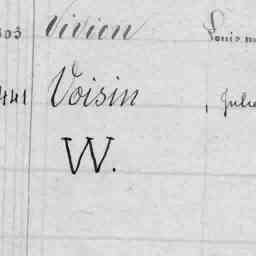 303 Vivien Louis
441 Voisin Julie
W.